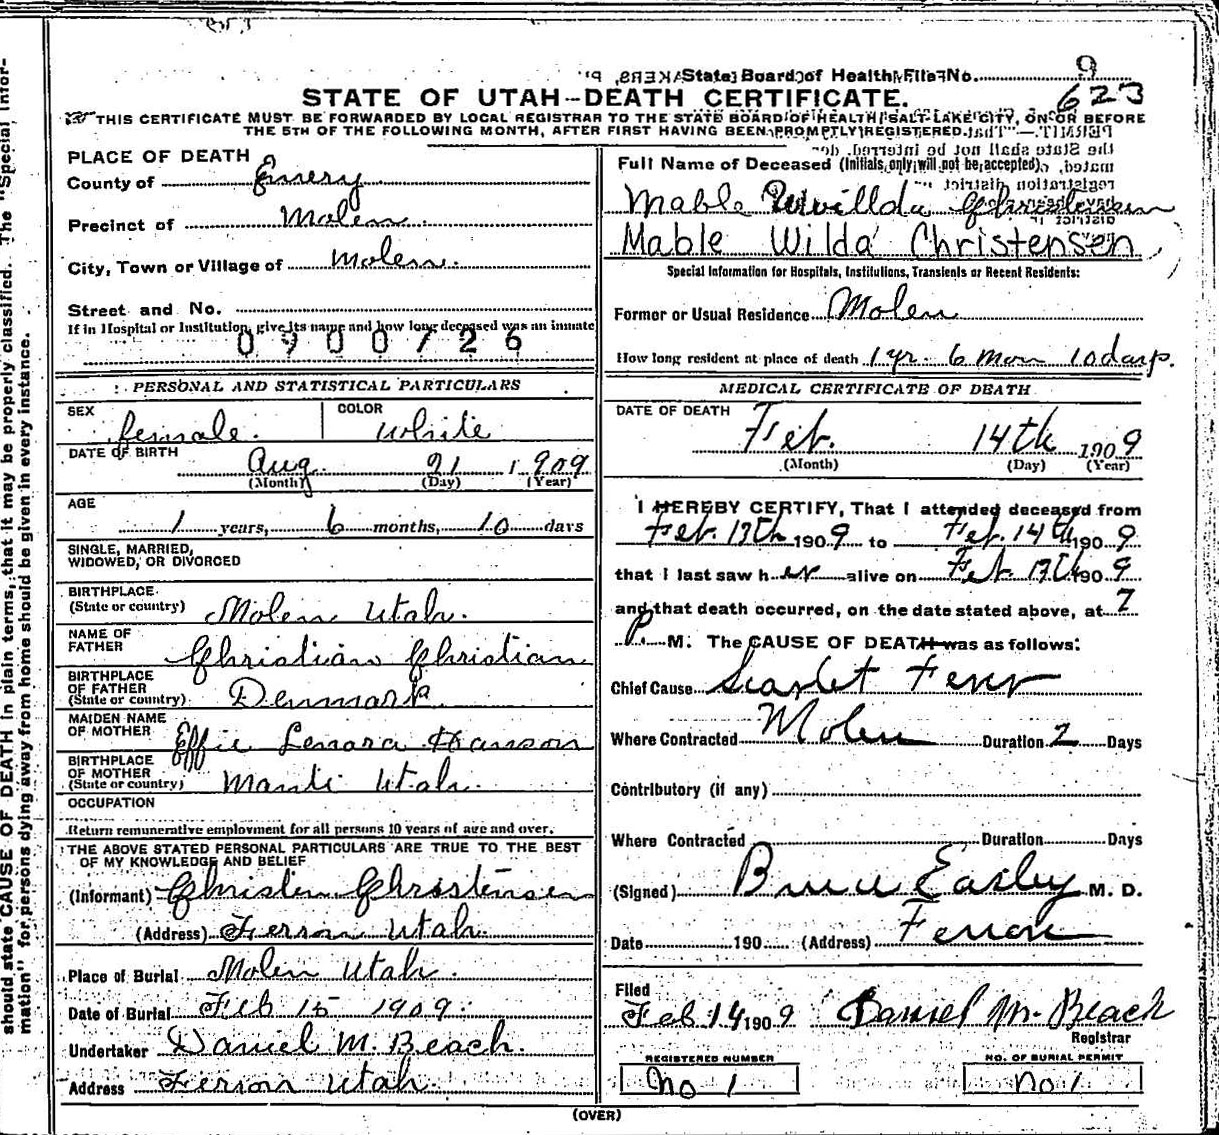 State Board of Health File No. 9
623
STATE OF UTAH--DEATH CERTIFICATE.
THIS CERTIFICATE MUST BE FORWARDED BY LOCAL REGISTRAR TO THE STATE BOARD OF HEALTH, SALT LAKE CITY, ON OR BEFORE
THE 5TH OF THE FOLLOWING MONTH, AFTER FIRST HAVING BEEN PROMPTLY REGISTERED.
PLACE OF DEATH
County of Emery
Precinct of Molen.
City, Town or Village of Molen.
Street and No.
If in Hospital or Institution, give its name and how long deceased was an inmate
0900726
PERSONAL AND STATISTICAL PARTICULARS
SEX female.
COLOR White
DATE OF BIRTH Aug. 21 1909
(Month) (Day) (Year)
AGE
1 years, 6 months, 10 days
SINGLE, MARRIED,
WIDOWED, OR DIVORCED
BIRTHPLACE
(State or country) Molen Utah.
NAME OF
FATHER Christian Christian
BIRTHPLACE
OF FATHER
(State or country) Denmark
MAIDEN NAME
OF MOTHER Effie Lenora Hanson
BIRTHPLACE
OF MOTHER
(State or country) Manti Utah.
OCCUPATION
Return remunerative employment for all persons 10 years of age and over.
THE ABOVE STATED PERSONAL PARTICULARS ARE TRUE TO THE BEST
OF MY KNOWLEDGE AND BELIEF
(Informant) Christen Christensen
(Address) Ferron Utah.
Place of Burial Molen Utah.
Date of Burial Feb 15 1909.
Undertaker Daniel M. Beach.
Address Ferron Utah.
Full Name of Deceased (Initials only will not be accepted)
Mable Willda Christensen
Mable Wilda Christensen
Special Information for Hospitals, Institutions, Transients or Recent Residents:
Former or Usual Residence Molen
How long resident at place of death 1 yr. 6 mon 10 days.
MEDICAL CERTIFICATE OF DEATH
DATE OF DEATH
Feb. 14th 1909
(Month) (Day) (Year)
I HEREBY CERTIFY, That I attended deceased from
Feb. 13th 1909 to Feb. 14th 1909
that I last saw her alive on Feb. 13th 1909
and that death occurred, on the date stated above, at 7
P. M. The CAUSE OF DEATH was as follows:
Chief Cause Scarlet Fever
Where Contracted Molen Duration 2 Days
Contributory (if any)
Where Contracted Duration Days
(Signed) Bruce Easley M. D.
Date 190 (Address) Ferron
Filed
Feb 14 1909 Daniel M. Beach
Registrar
REGISTERED NUMBER
No 1
NO. OF BURIAL PERMIT
no 1
(OVER)
should state CAUSE OF DEATH in plain terms, that it may be properly classified. The "Special Infor-
mation" for persons dying away from home should be given in every instance.